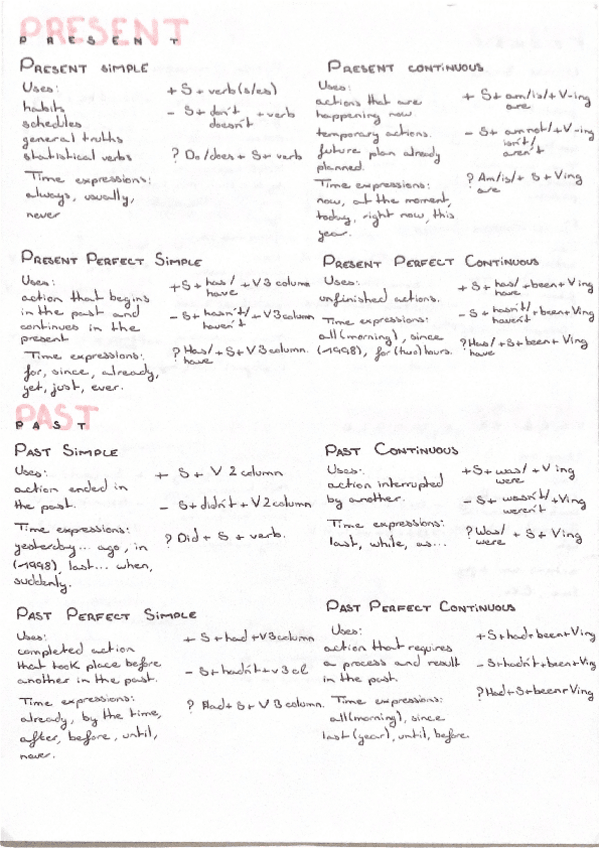 PRESENT
PRESENT
PRESENT SIMPLE
Uses:
habits
schedules
general truths
statistical verbs
Time expressions:
always, usually,
never
+ S + verb(s/es)
- S + don't + verb
doesn't
? Do/does + S + verb
PRESENT CONTINUOUS
Uses:
actions that are
happening now.
temporary actions.
future plan already
planned.
Time expressions:
now, at the moment,
today, right now, this
year.
+ S + am/is/ + V-ing
are
- S + am not/ + V-ing
isn't/
aren't
? Am/is/ + S + Ving
are
PRESENT PERFECT SIMPLE
Uses:
action that begins
in the past and
continues in the
present
Time expressions:
for, since, already,
yet, just, ever.
+ S + has/ + V3 column
have
- S + hasn't/ + V3 column
haven't
? Has/ + S + V3 column.
have
PRESENT PERFECT CONTINUOUS
Uses:
unfinished actions.
Time expressions:
all (morning), since
(1998), for (two) hours.
+ S + has/ + been + Ving
have
- S + hasn't/ + been + Ving
haven't
? Has/ + S + been + Ving
have
PAST
PAST
PAST SIMPLE
Uses:
action ended in
the past.
Time expressions:
yesterday... ago, in
(1998), last... when,
suddenly.
+ S + V 2 column
- S + didn't + V2 column
? Did + S + verb.
PAST CONTINUOUS
Uses:
action interrupted
by another.
Time expressions:
last, while, as...
+ S + was/ + V ing
were
- S + wasn't/ + Ving
weren't
? Was/ + S + Ving
were
PAST PERFECT SIMPLE
Uses:
completed action
that took place before
another in the past.
Time expressions:
already, by the time,
after, before, until,
never.
+ S + had + V3 column
- S + hadn't + v3 cl
? Had + S + V3 column.
PAST PERFECT CONTINUOUS
Uses:
action that requires
a process and result
in the past.
Time expressions:
all (morning), since
last (year), until, before.
+ S + had + been + Ving
- S + hadn't + been + Ving
? Had + S + been + Ving